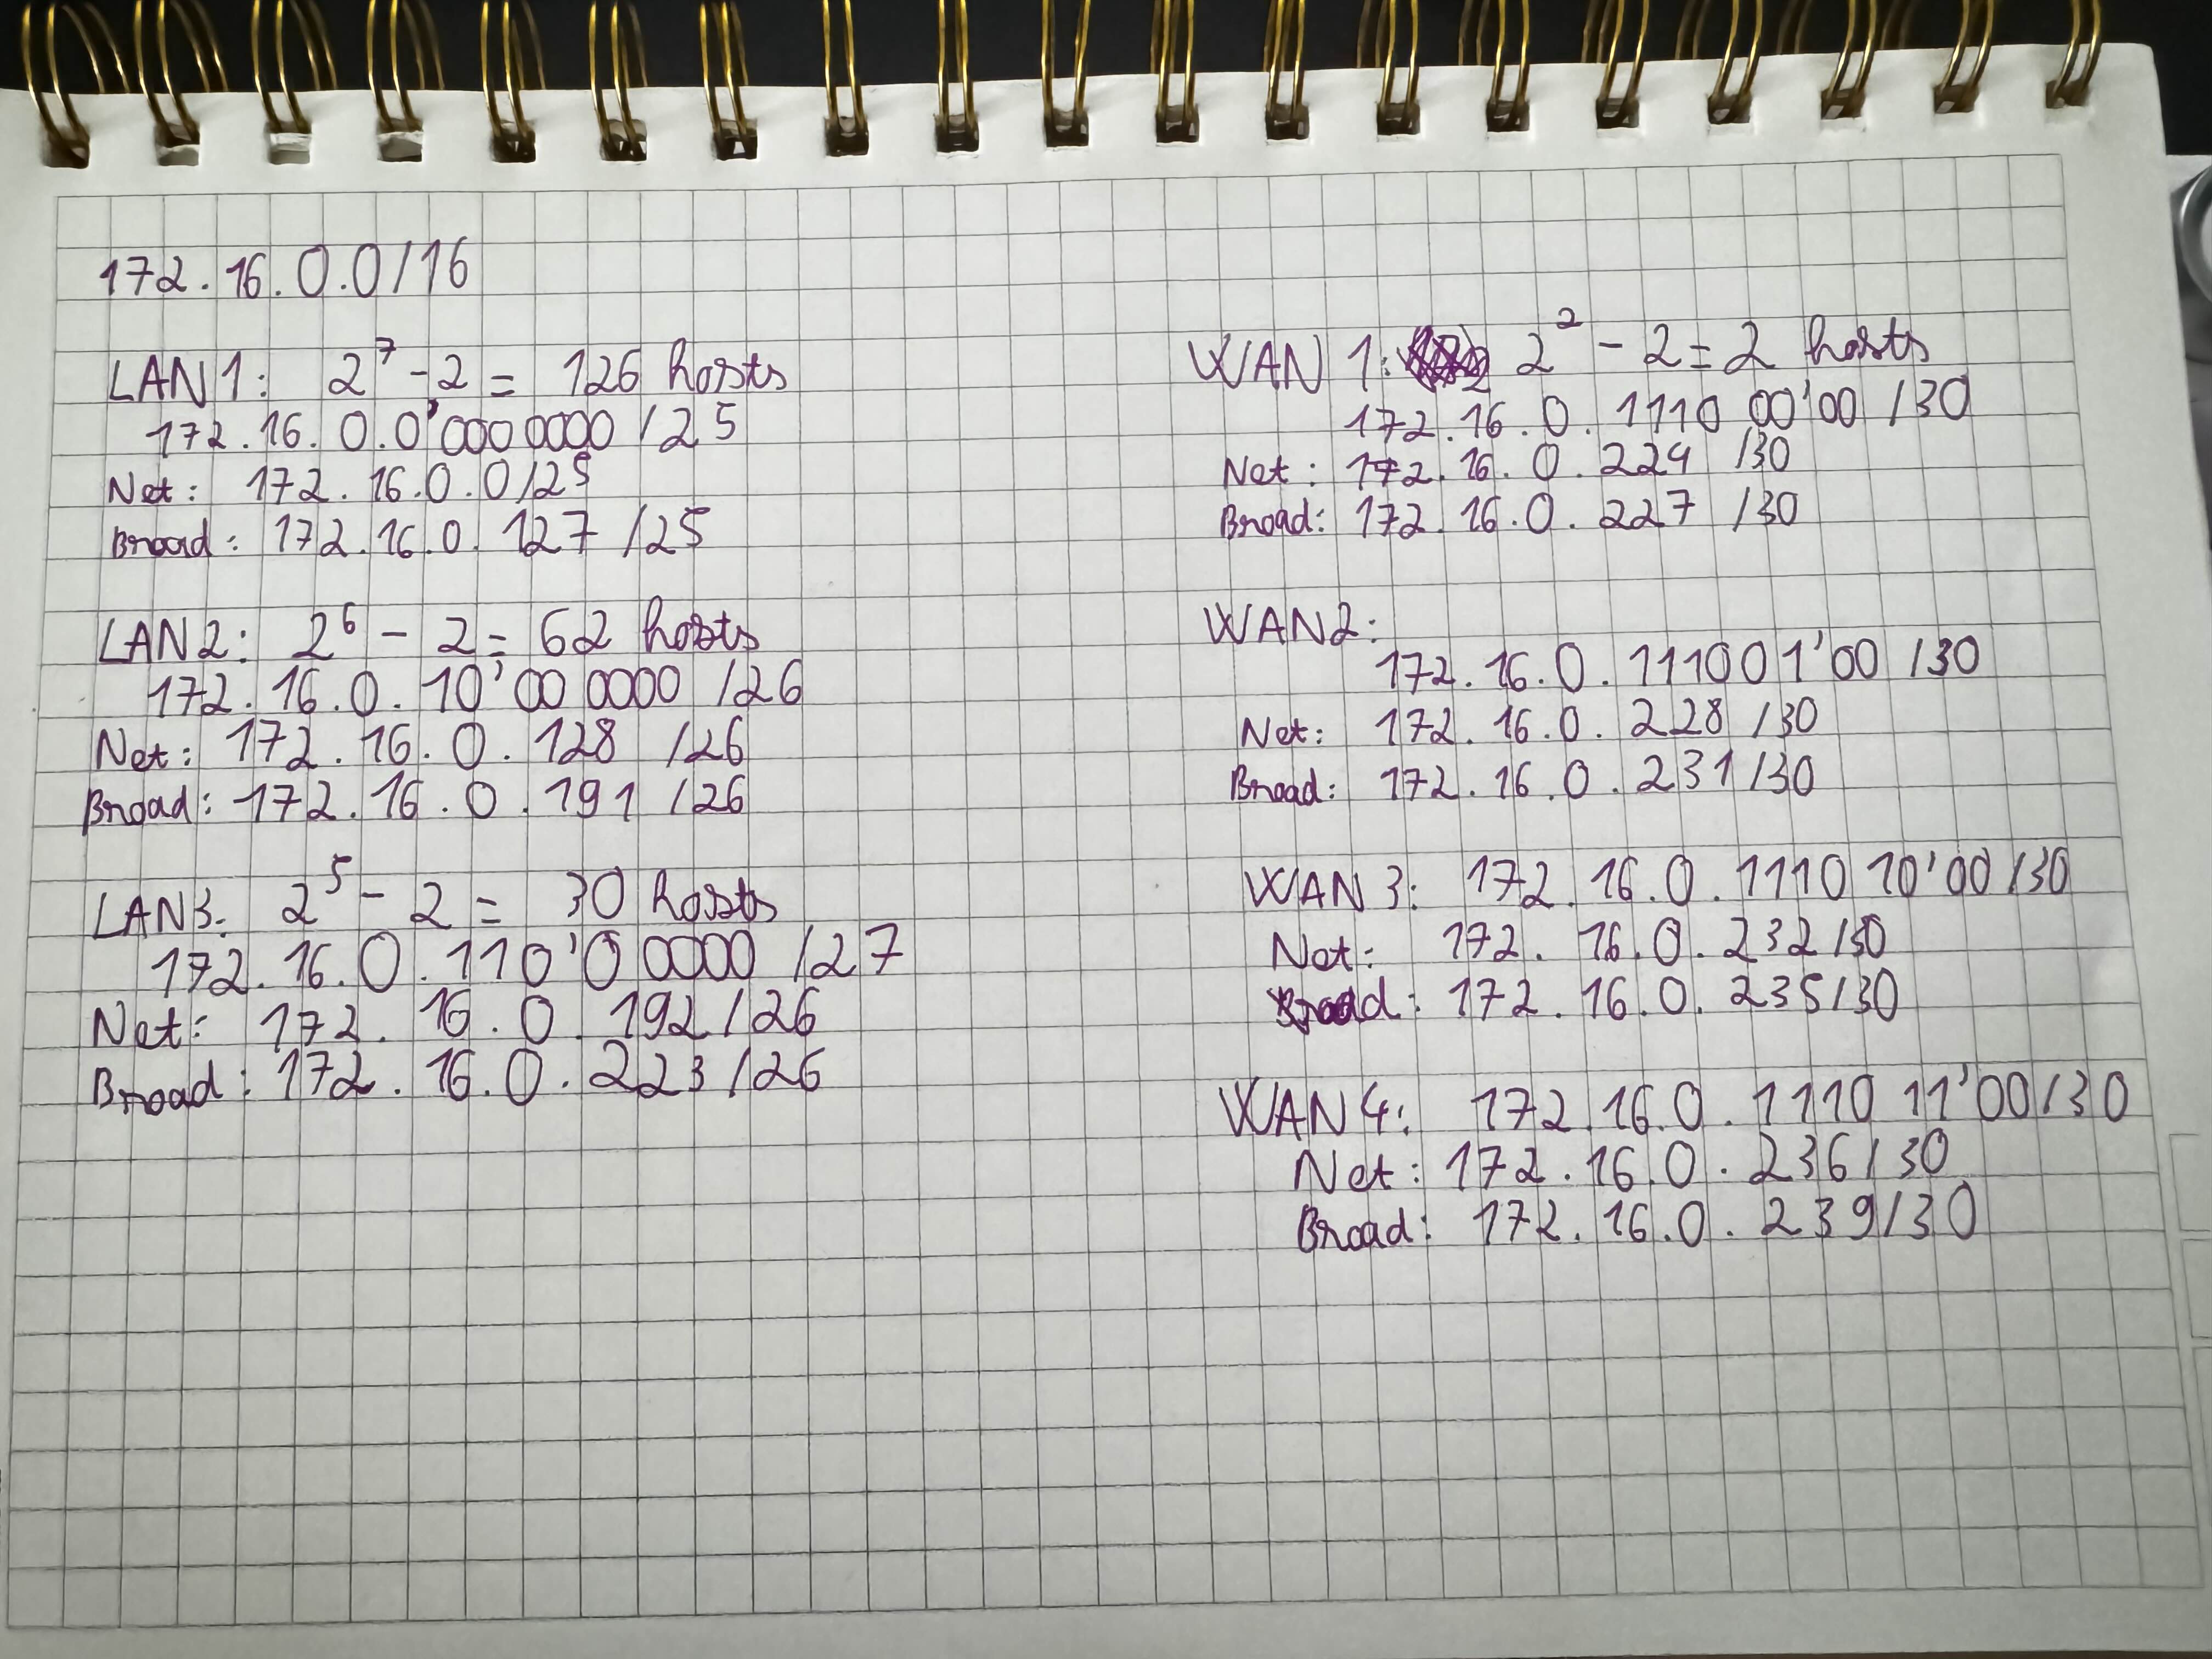 172.16.0.0/16
LAN1: 2^7 - 2 = 126 hosts
172.16.0.0'0000000 /25
Net: 172.16.0.0/25
Broad: 172.16.0.127 /25
LAN2: 2^6 - 2 = 62 hosts
172.16.0.10'000000 /26
Net: 172.16.0.128 /26
Broad: 172.16.0.191 /26
LAN3: 2^5 - 2 = 30 hosts
172.16.0.110'00000 /27
Net: 172.16.0.192/26
Broad: 172.16.0.223/26
WAN 1: 2^2 - 2 = 2 hosts
172.16.0.1110 00'00 /30
Net: 172.16.0.224 /30
Broad: 172.16.0.227 /30
WAN2:
172.16.0.111001'00 /30
Net: 172.16.0.228 /30
Broad: 172.16.0.231/30
WAN 3: 172.16.0.1110 10'00 /30
Net: 172.16.0.232/30
Broad: 172.16.0.235/30
WAN 4: 172.16.0.1110 11'00/30
Net: 172.16.0.236/30
Broad: 172.16.0.239/30